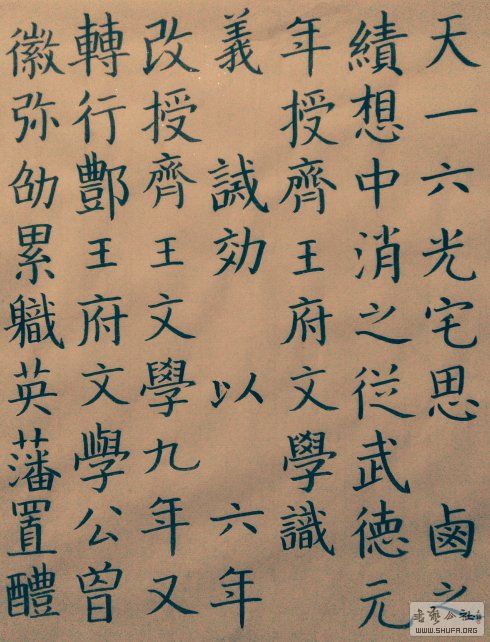 天一六光宅思 鹵之
績想中消之従武德元
年授齊王府文學識
義 誠効 以 六年
改授齊王文學九年又
轉行酆王府文學公曽
徽弥劭累職英藩置醴
書艺公社
WWW.SHUFA.ORG